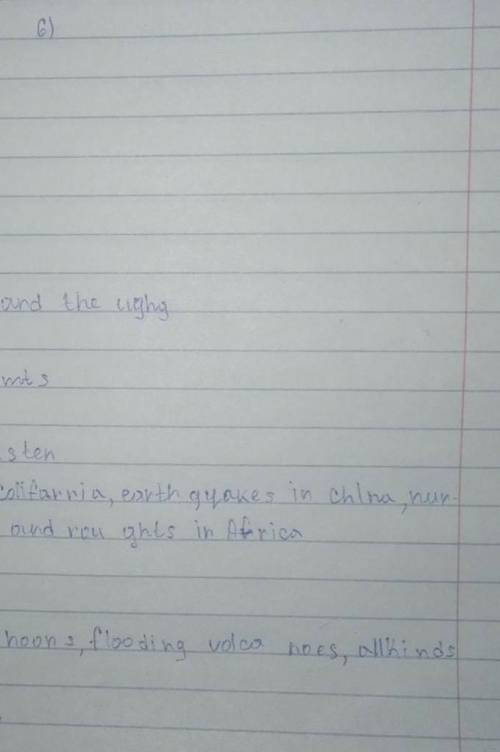 6)
and the ughg
mts
sten
colifarnia, earth quakes in china, nur-
and rou ghts in Africa
hoons, flooding volca noes, allkinds